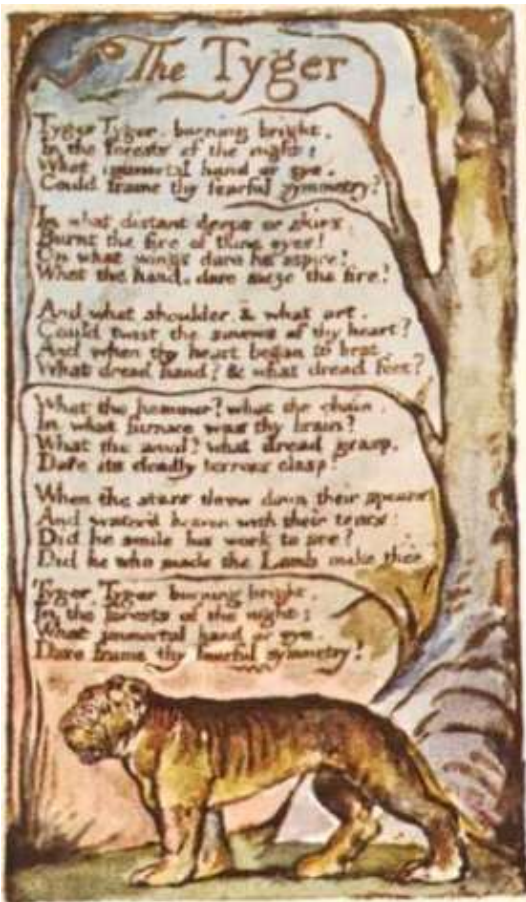 The Tyger
Tyger Tyger, burning bright,
In the forests of the night;
What immortal hand or eye,
Could frame thy fearful symmetry?
In what distant deeps or skies,
Burnt the fire of thine eyes!
On what wings dare he aspire!
What the hand, dare sieze the fire!
And what shoulder, & what art,
Could twist the sinews of thy heart?
And when thy heart began to beat,
What dread hand? & what dread feet?
What the hammer? what the chain,
In what furnace was thy brain?
What the anvil? what dread grasp,
Dare its deadly terrors clasp!
When the stars threw down their spears
And water'd heaven with their tears:
Did he smile his work to see?
Did he who made the Lamb make thee
Tyger Tyger burning bright,
In the forests of the night;
What immortal hand or eye,
Dare frame thy fearful symmetry!